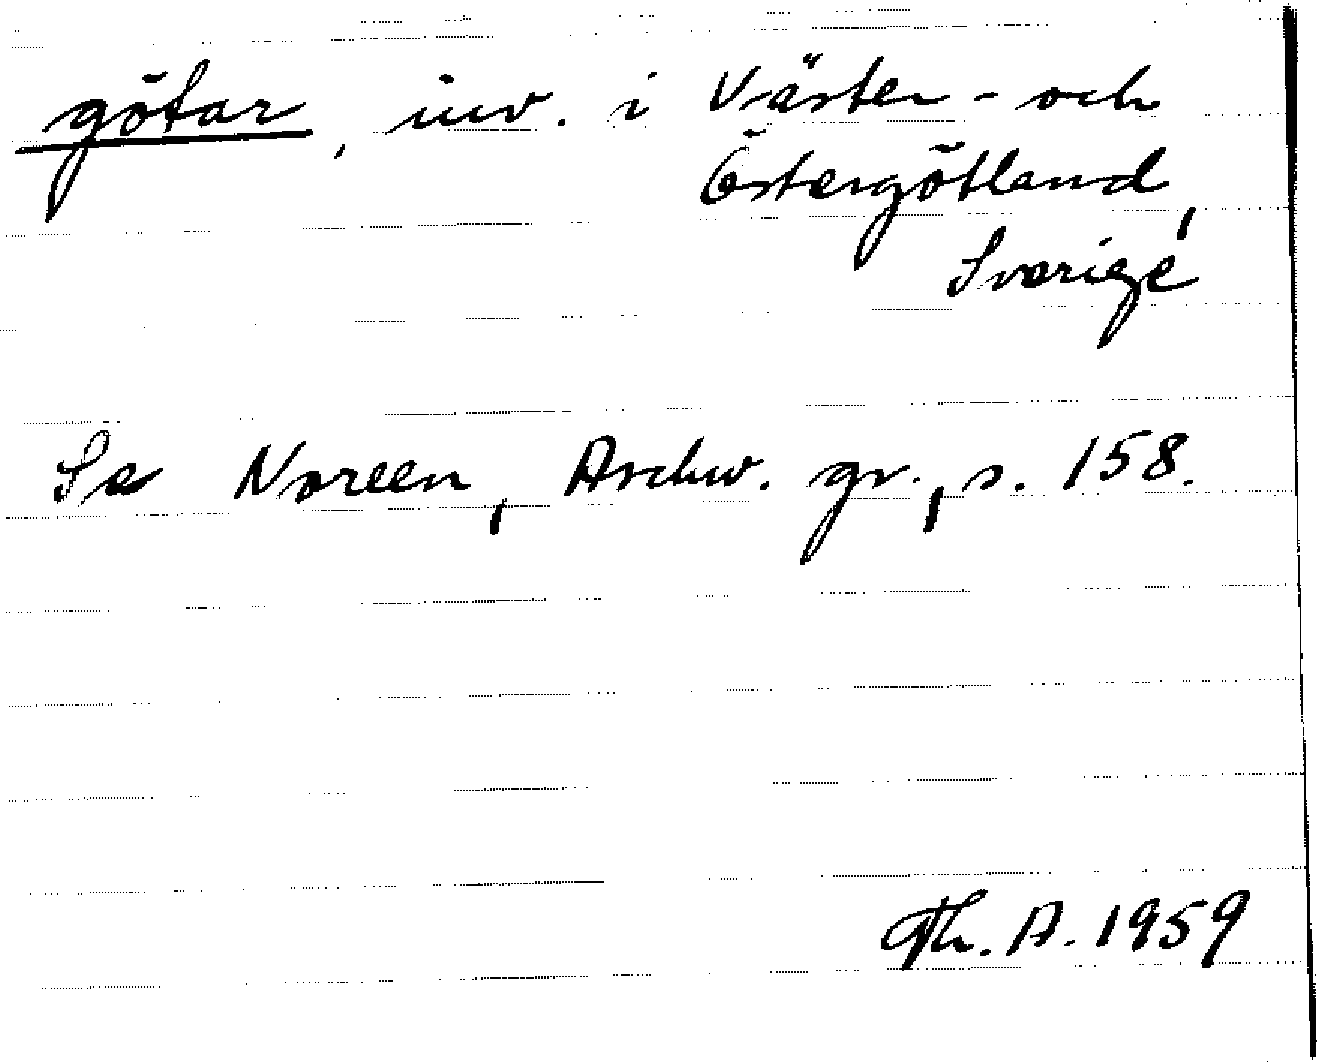 götar, inv. i Väster- och
Östergötland,
Sverige
Se Noreen, Aschw. gr., s. 158.
Th. A. 1959